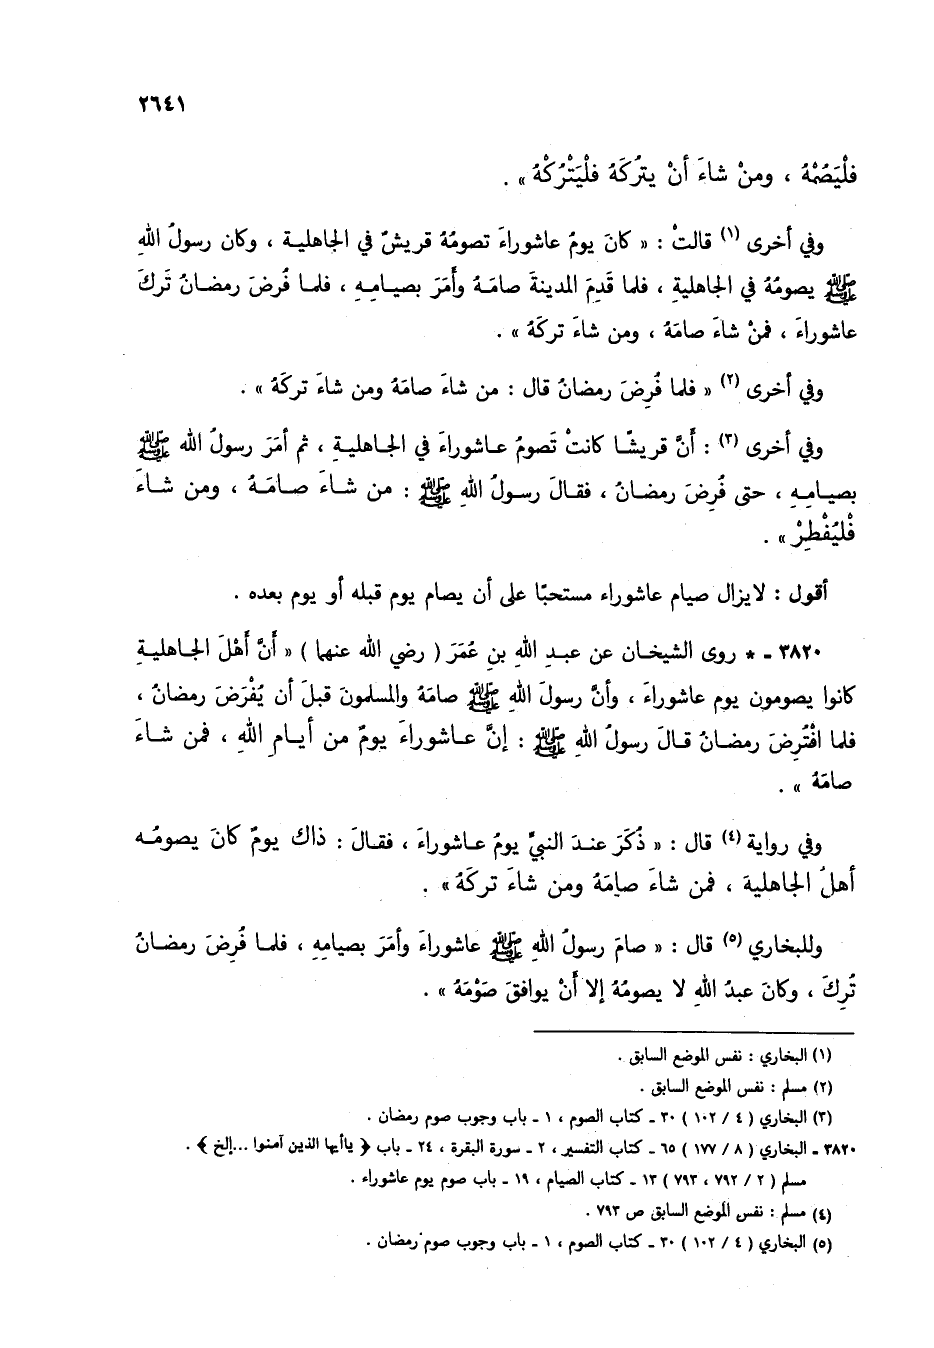 ٢٦٤١
فلْيَصُمْهُ ، ومنْ شاءَ أنْ يترُكَهُ فلْيَتْرُكْهُ » .
وفي أخرى (١) قالتْ : « كانَ يومُ عاشوراءَ تصومُهُ قريشٌ في الجاهليـة ، وكان رسولُ اللهِ
ﷺ يصومُهُ في الجاهليةِ ، فلما قَدِمَ المدينةَ صامَـهُ وأَمَرَ بصيـامِـهِ ، فلمـا فُرِضَ رمضـانُ تَركَ
عاشوراءَ ، فمنْ شاءَ صامَهُ ، ومن شاءَ تركَهُ » .
وفي أخرى (٢) « فلما فُرِضَ رمضانُ قال : من شاءَ صامَهُ ومن شاءَ تركَهُ » .
وفي أخرى (٣) : أَنَّ قريشًـا كانتْ تَصومُ عـاشوراءَ في الجـاهليـةِ ، ثم أمَرَ رسولُ الله ﷺ
بصيـامِـهِ ، حتى فُرِضَ رمضـانُ ، فقـالَ رسـولُ اللهِ ﷺ : من شـاءَ صـامَـهُ ، ومن شـاءَ
فْليُفْطِرْ » .
أقول : لايزال صيام عاشوراء مستحبًا على أن يصام يوم قبله أو يوم بعده .
٣٨٢٠ ـ * روى الشيخـان عن عبـدِ اللهِ بنِ عُمَرَ ( رضي الله عنهما ) « أَنَّ أَهْلَ الجـاهليـةِ
كانوا يصومون يوم عاشوراءَ ، وأنَّ رسولَ اللهِ ﷺ صامَهُ والمسلمونَ قبلَ أن يُفْرَضَ رمضانُ ،
فلما افْتُرِضَ رمضـانُ قـالَ رسولُ اللهِ ﷺ : إنَّ عـاشوراءَ يومٌ من أيـامِ اللهِ ، فمن شـاءَ
صامَهُ » .
وفي رواية (٤) قال : « ذُكَرَ عنـدَ النبيِّ يومُ عـاشوراءَ ، فقـالَ : ذاك يومٌ كانَ يصومُـه
أهلُ الجاهليةَ ، فمن شاءَ صامَهُ ومن شاءَ تركَهُ » .
وللبخاري (٥) قال : « صامَ رسولُ اللهِ ﷺ عاشوراءَ وأمَرَ بصيامِهِ ، فلمـا فُرِضَ رمضـانُ
تُرِكَ ، وكانَ عبدُ اللهِ لا يصومُهُ إلا أَنْ يوافقَ صَوْمَهُ » .
(١) البخاري : نفس الموضع السابق .
(٢) مسلم : نفس الموضع السابق .
(٣) البخاري ( ٤ / ١٠٢ ) ٣٠ ـ كتاب الصوم ، ١ ـ باب وجوب صوم رمضان .
٣٨٢٠ ـ البخاري ( ٨ / ١٧٧ ) ٦٥ ـ كتاب التفسير ، ٢ ـ سورة البقرة ، ٢٤ ـ باب ﴿ ياأيها الذين آمنوا ...إلخ ﴾ .
مسلم ( ٢ / ٧٩٢ ، ٧٩٣ ) ١٣ ـ كتاب الصيام ، ١٩ ـ باب صوم يوم عاشوراء .
(٤) مسلم : نفس الموضع السابق ص ٧٩٣ .
(٥) البخاري ( ٤ / ١٠٢ ) ٣٠ ـ كتاب الصوم ، ١ ـ باب وجوب صوم رمضان .